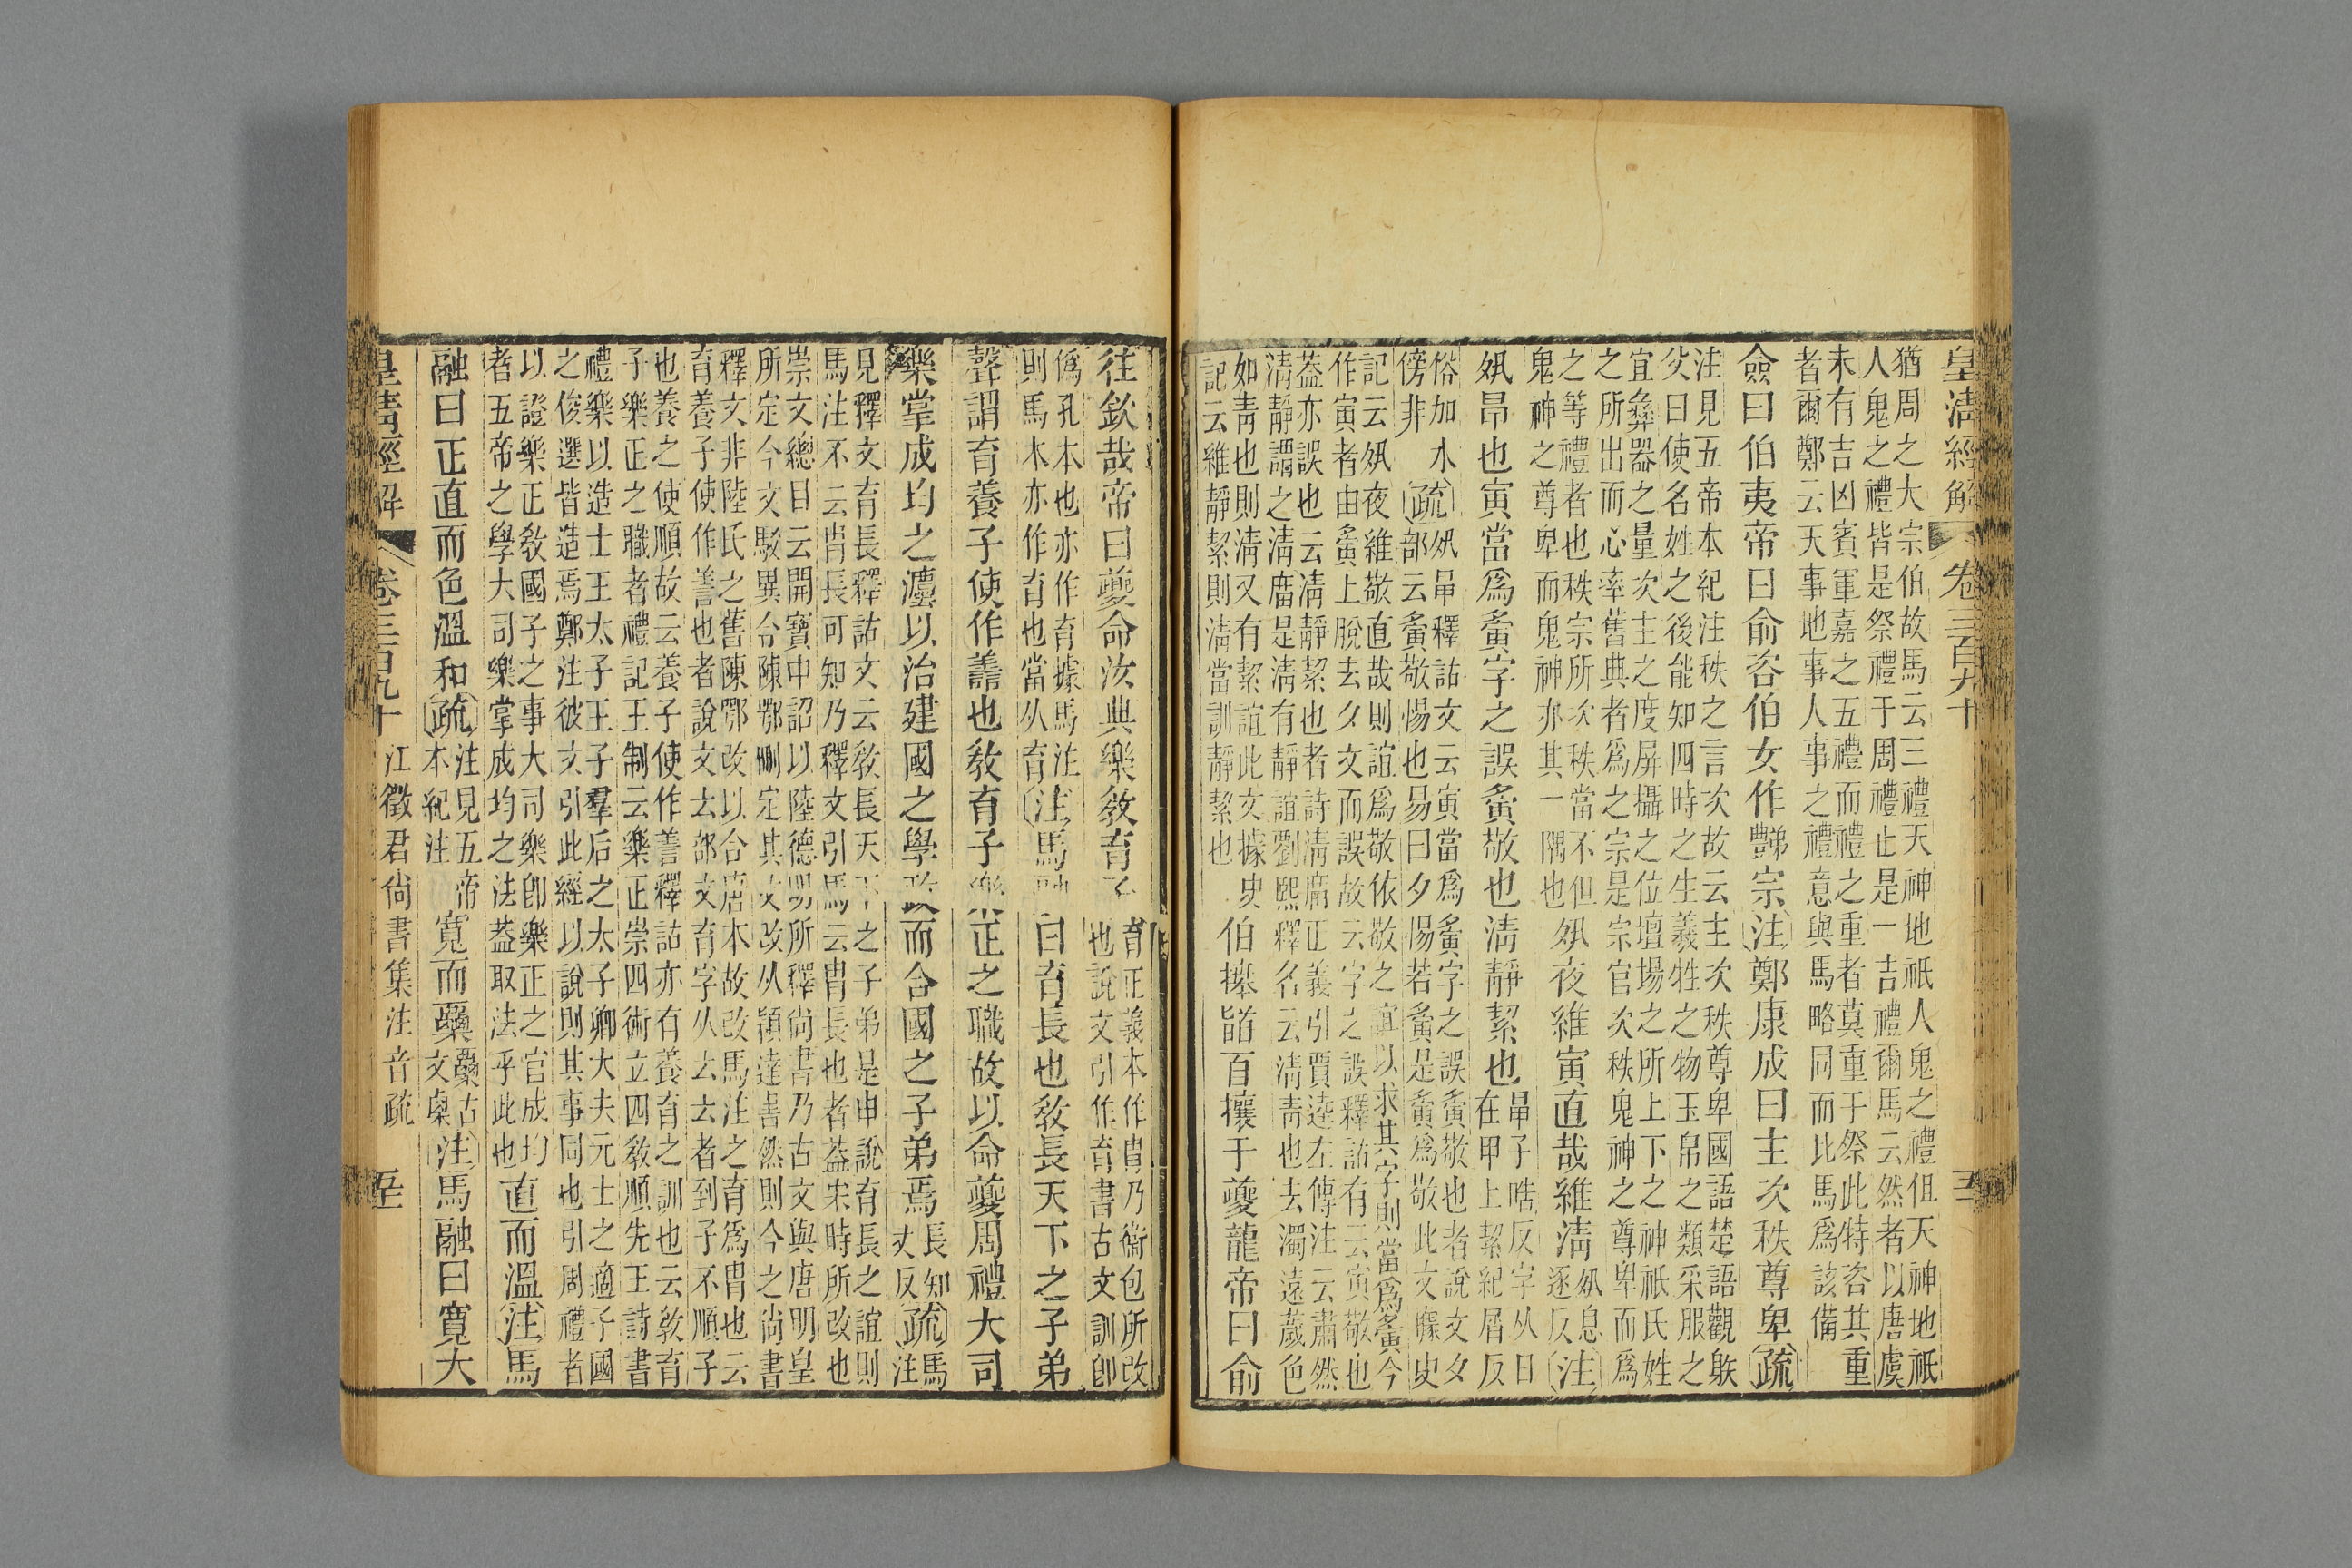 皇淸經解 卷三百九十
猶周之大宗伯故馬云三禮天神地祇人鬼之禮伹天神地祇
人鬼之禮皆是祭禮于周禮止是一吉禮爾馬云然者以唐虞
未有吉凶賓軍嘉之五禮而禮之重者莫重于祭此特咨其重
者爾鄭云天事地事人事之禮禮意與馬略同而比馬爲該備
僉曰伯夷帝曰俞咨伯女作豑宗注鄭康成曰主次秩尊卑疏
注見五帝本紀注秩之言次故云主次秩尊卑國語楚語觀䠶
父曰使名姓之後能知四時之生羲牲之物玉帛之類采服之
宜彝器之量次主之度屏攝之位壇場之所上下之神祇氏姓
之所出而心率舊典者爲之宗是宗官次秩鬼神之尊卑而爲
之等禮者也秩宗所次秩當不但
鬼神之尊卑而鬼神亦其一隅也
夙夜維寅直哉維淸
夙息
逐反
注
夙昂也寅當爲夤字之誤夤敬也淸靜絜也
昂子晧反字从日
在甲上絜紀屑反
俗加水
傍非
疏
夙昂釋詁文云寅當爲夤字之誤夤敬也者說文夕
部云夤敬惕也易曰夕惕若夤是夤爲敬此文據史
記云夙夜維敬直哉則誼爲敬依敬之誼以求其字則當爲夤今
作寅者由夤上脫去夕文而誤故云字之誤釋詁有云寅敬也
葢亦誤也云淸靜絜也者詩淸廟正義引賈逵左傳注云肅然
淸靜謂之淸廟是淸有靜誼劉熙釋名云淸靑也去濁遠薉色
如靑也則淸又有絜誼此文據史
記云維靜絜則淸當訓靜絜也
伯𢷎䭫百攘于夔龍帝曰俞
往欽哉帝曰夔命汝典樂敎育子
育正義本作胄乃衞包所改
也說文引作育書古文訓卽
僞孔本也亦作育據馬注
則馬本亦作育也當从育
注馬融曰育長也敎長天下之子弟
聲謂育養子使作譱也敎育子樂正之職故以命夔周禮大司
樂掌成均之灋以治建國之學政而合國之子弟焉
長知
丈反
疏
馬
注
見釋文育長釋詁文云敎長天下之子弟是申說育長之誼則
馬注不云胄長可知乃釋文引馬云胄長也者葢宋時所改也
崇文總目云開寶中詔以陸德明所釋尙書乃古文與唐明皇
所定今文駁異令陳鄂删定其文改从穎達書然則今之尙書
釋文非陸氏之舊陳鄂改以合唐本故改馬注之育爲胄也云
育養子使作善也者說文𠫓部文育字从𠫓𠫓者到子不順子
也養之使順故云養子使作善釋詁亦有養育之訓也云敎育
子樂正之職者禮記王制云樂正崇四術立四敎順先王詩書
禮樂以造士王太子王子羣后之太子卿大夫元士之適子國
之俊選皆造焉鄭注彼文引此經以說則其事同也引周禮者
以證樂正敎國子之事大司樂卽樂正之官成均
者五帝之學大司樂掌成均之法葢取法乎此也
直而溫注馬
融曰正直而色溫和疏
注見五帝
本紀注
寬而㮚
㮚古
文㮚
注馬融曰寬大
皇淸經解 卷三百九十 江徵君尙書集注音疏